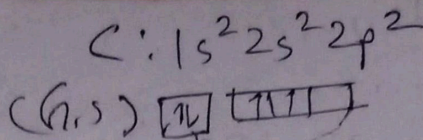 C : 1s² 2s² 2p²
(G.S) ⇅ ↑ ↑